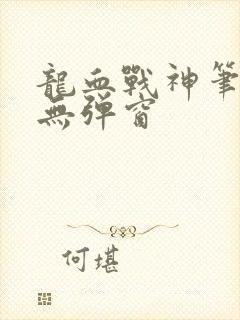 龍血戰神筆
無彈窗
何堪